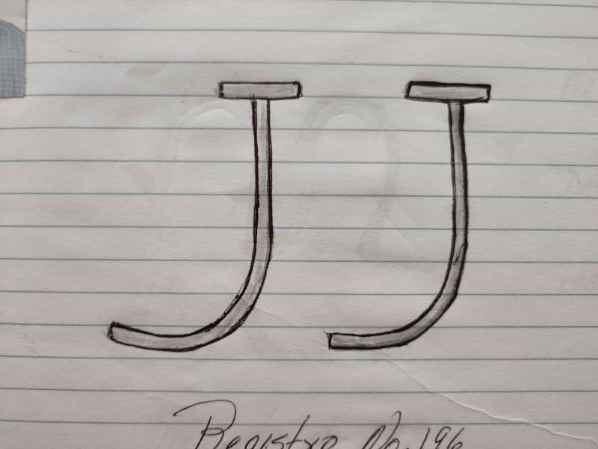 JJ
Registro No. 196